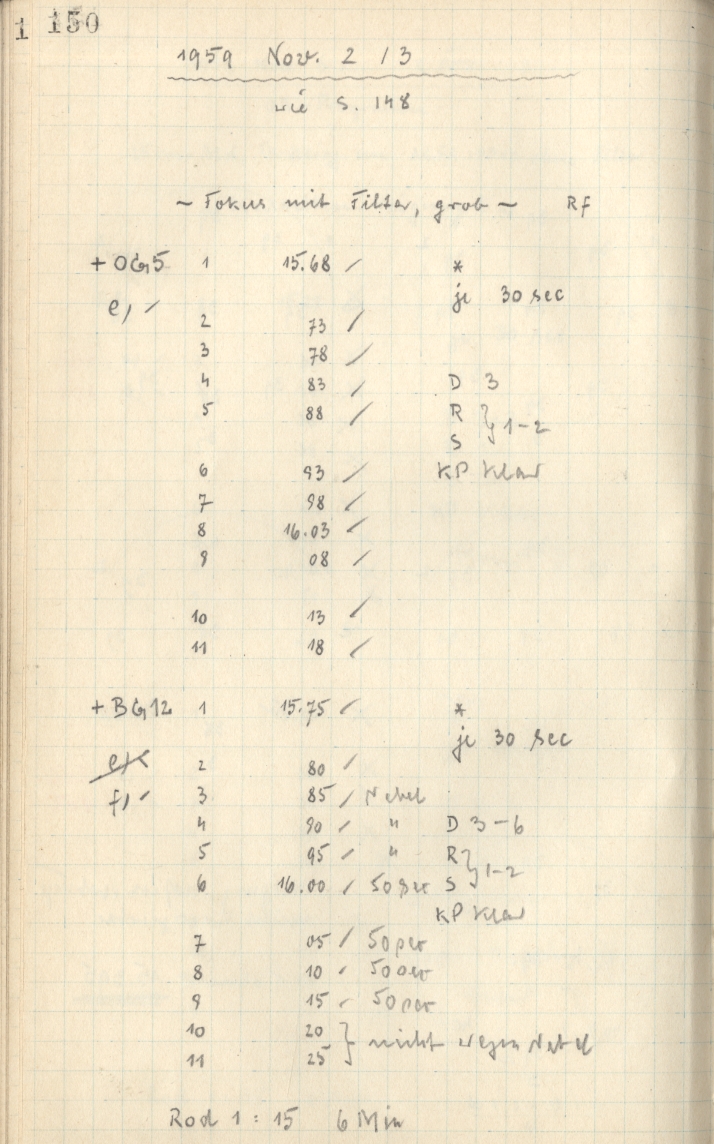 1 150
1959 Nov. 2 / 3
wie S. 148
~ Fokus mit Filter, grob ~ Rf
+ OG5 1 15.68 / *
je 30 sec
e, /
2 73 /
3 78 /
4 83 / D 3
5 88 / R } 1-2
S
6 93 / KP klar
7 98 /
8 16.03 /
9 08 /
10 13 /
11 18 /
+ BG12 1 15.75 / *
je 30 sec
2 80 /
f, / 3 85 / Nebel
4 90 / " D 3-6
5 95 / " R } 1-2
6 16.00 / 50 sec S
KP klar
7 05 / 50 sec
8 10 / 50 sec
9 15 / 50 sec
10 20 } nicht wegen Nebel
11 25
Rod 1 : 15 6 Min